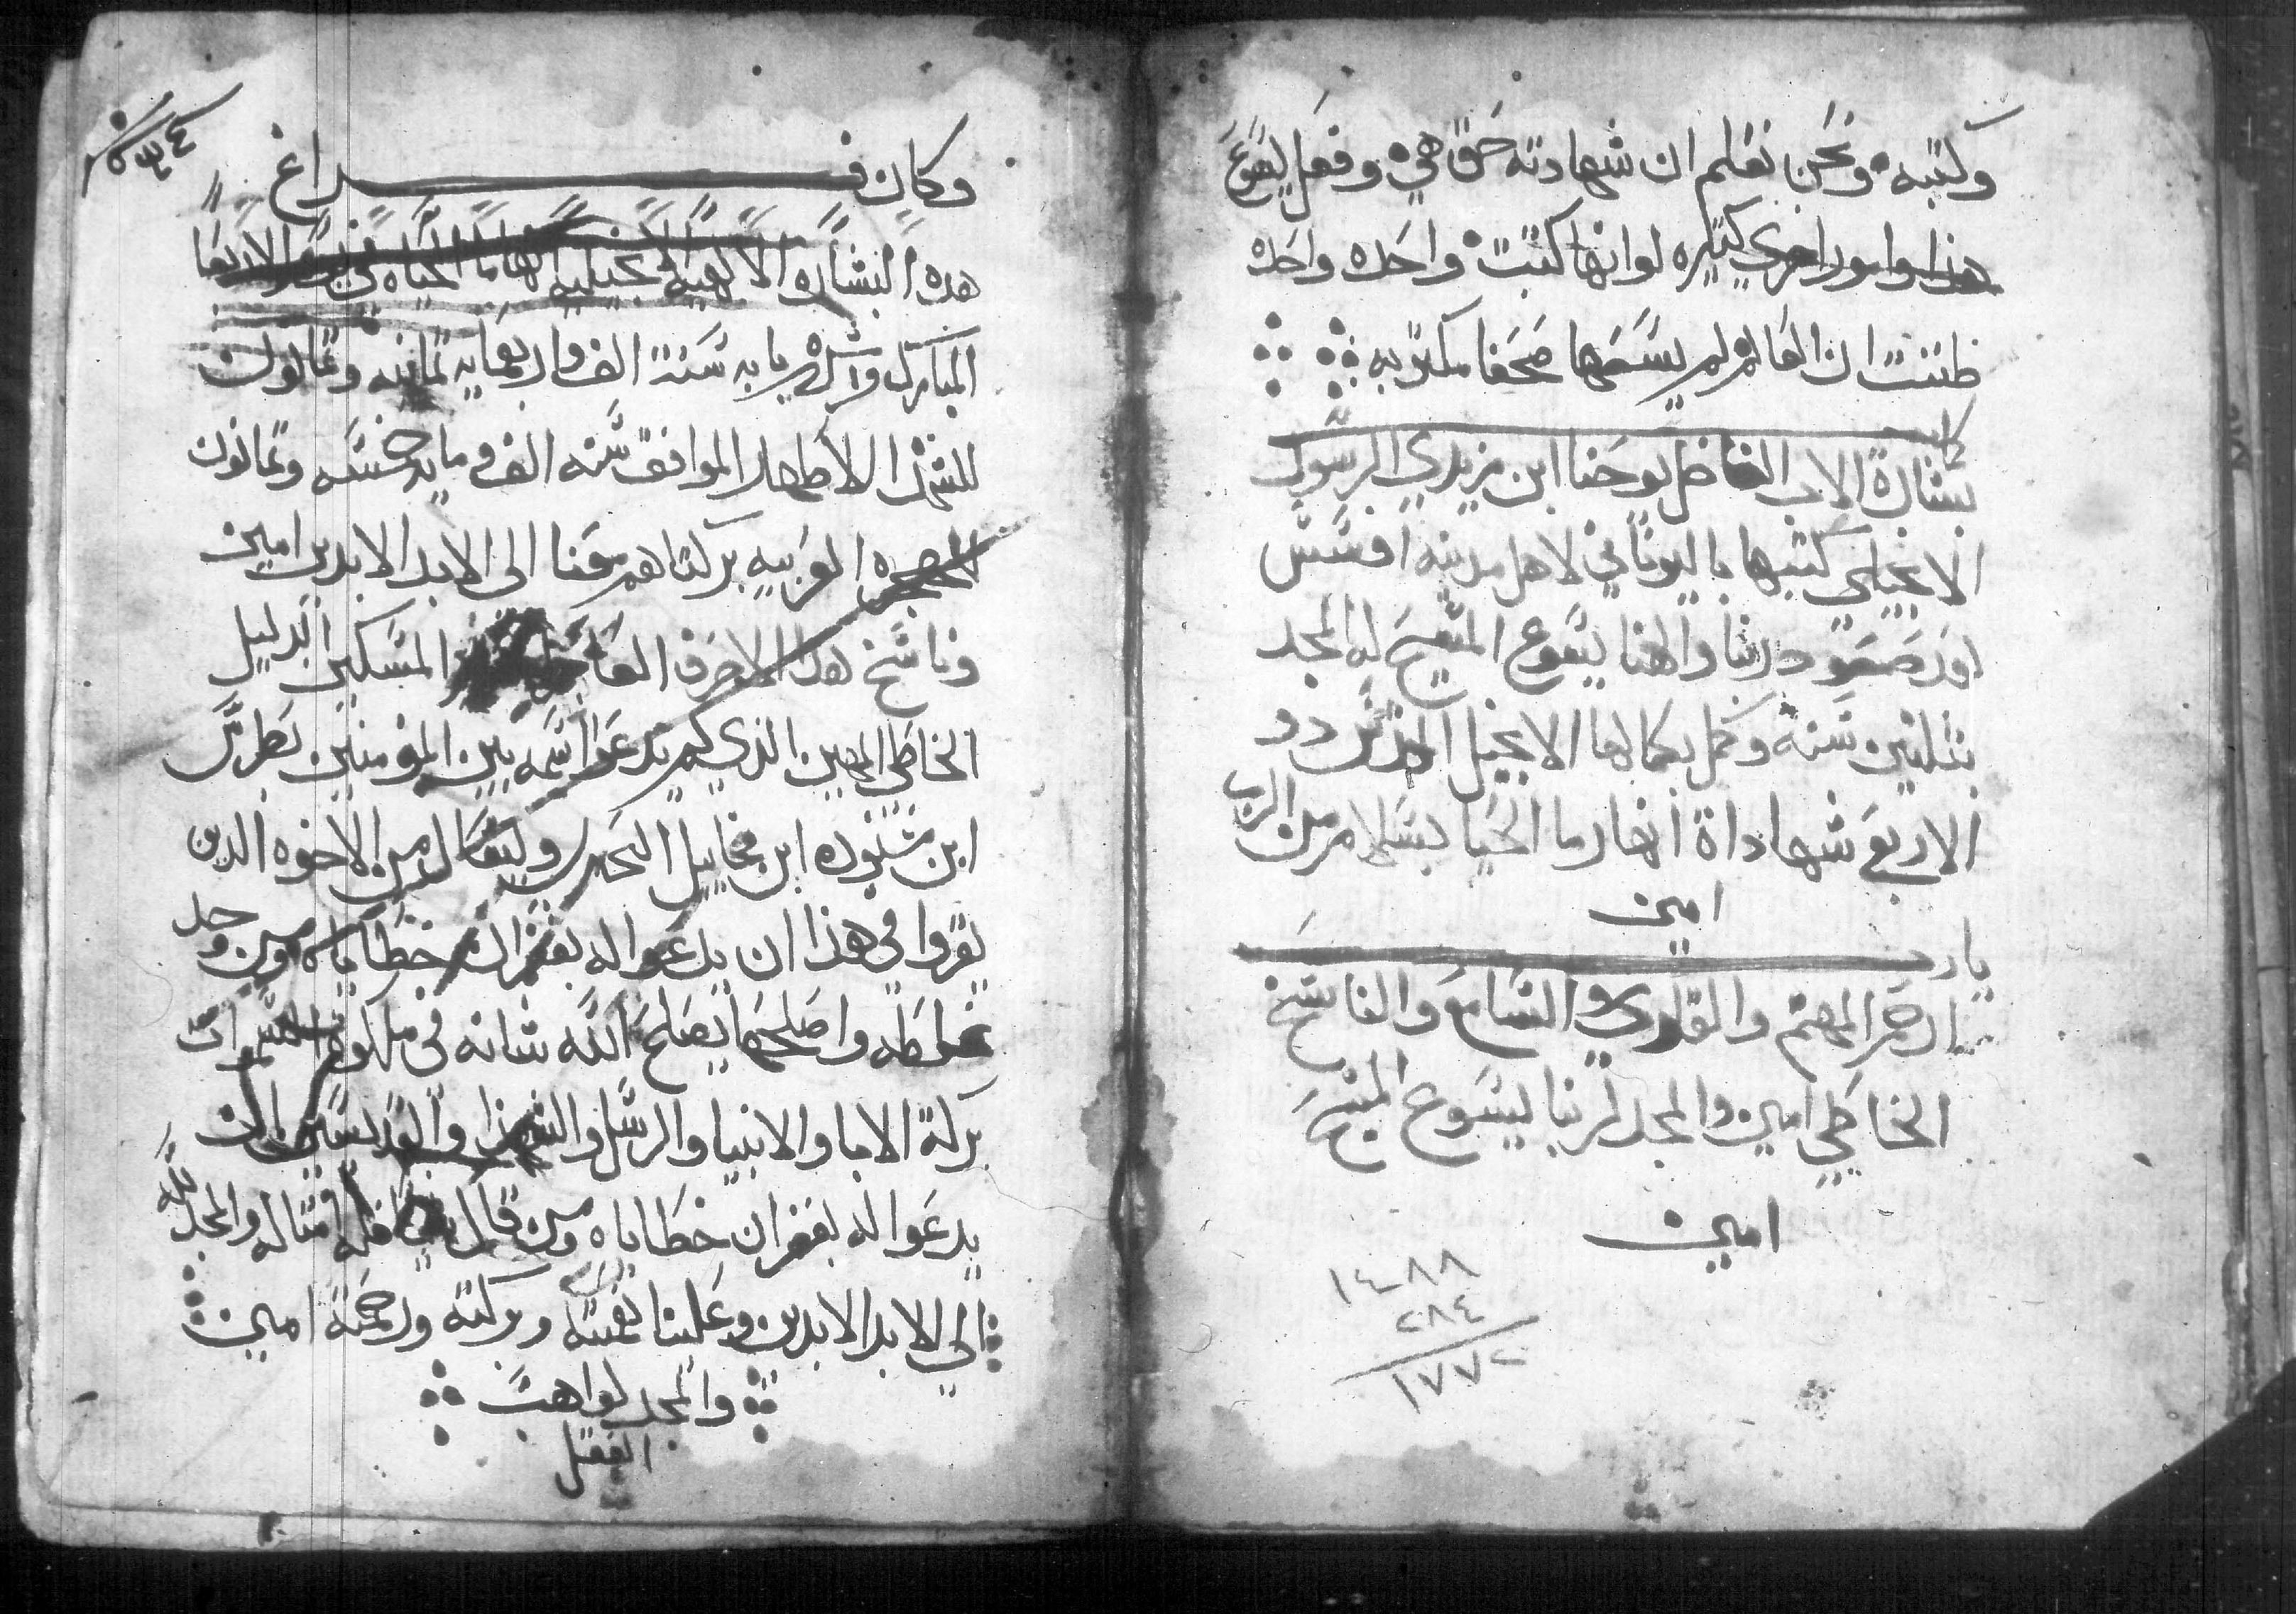 وكتبه ونحن نعلم ان شهادته حق هي وفعل يسوع
هذا وامور اخري كتيره لو انها كتبت واحده واحده
ظننت ان العالم لم يسعها صحفا مكتوبه
كملة
بشارة الاب الفاضل يوحنا ابن زبدي الرسول
الانجيلي كتبها باليوناني لاهل مدينه افسس
بعد صعود ربنا والهنا يسوع المسيح له المجد
بتلتين سنه وكمل بكمالها الانجيل المقدس دو
الاربع شهاداة انهار ما الحيا بسلام من الرب
امين
يارب
ارحم المهتم والقاري والسامع والناسخ
الخاطي امين والمجد لربنا يسوع المسيح
امين
١٤٨٨
٢٨٤
١٧٧٢
وكان فراغ
هده البشاره الالاهيه الانجيليه الحياه في يوم الاربعا
المبارك سنة الف واربعمايه تمانيه وتمانون
للشهدا الاطهار الموافق سنه الف ومايه خمسه وتمانون
العربيه بركتاهم معنا الى الابد الابدين امين
وناسخ هده الاحرف المسكين الدليل
الخاطي المهين الذي لم يدعوا اسمه بين المؤمنين بطرس
ابن شنوده ابن مخاييل ويسال من الاخوه الدين
يقروا في هذا ان يدعوا له بغفران خطاياه ومن وجد
غلطه واصلحها يصلح الله شانه في ملكوت السموات
بركة الابا والانبيا والرسل والشهدا والقديسين
يدعوا له بغفران خطاياه ومن قال شي فله امتاله والمجد لله
الي الابد الابدين وعلينا نعمته وبركته ورحمته امين
والمجد لواهب
العقل